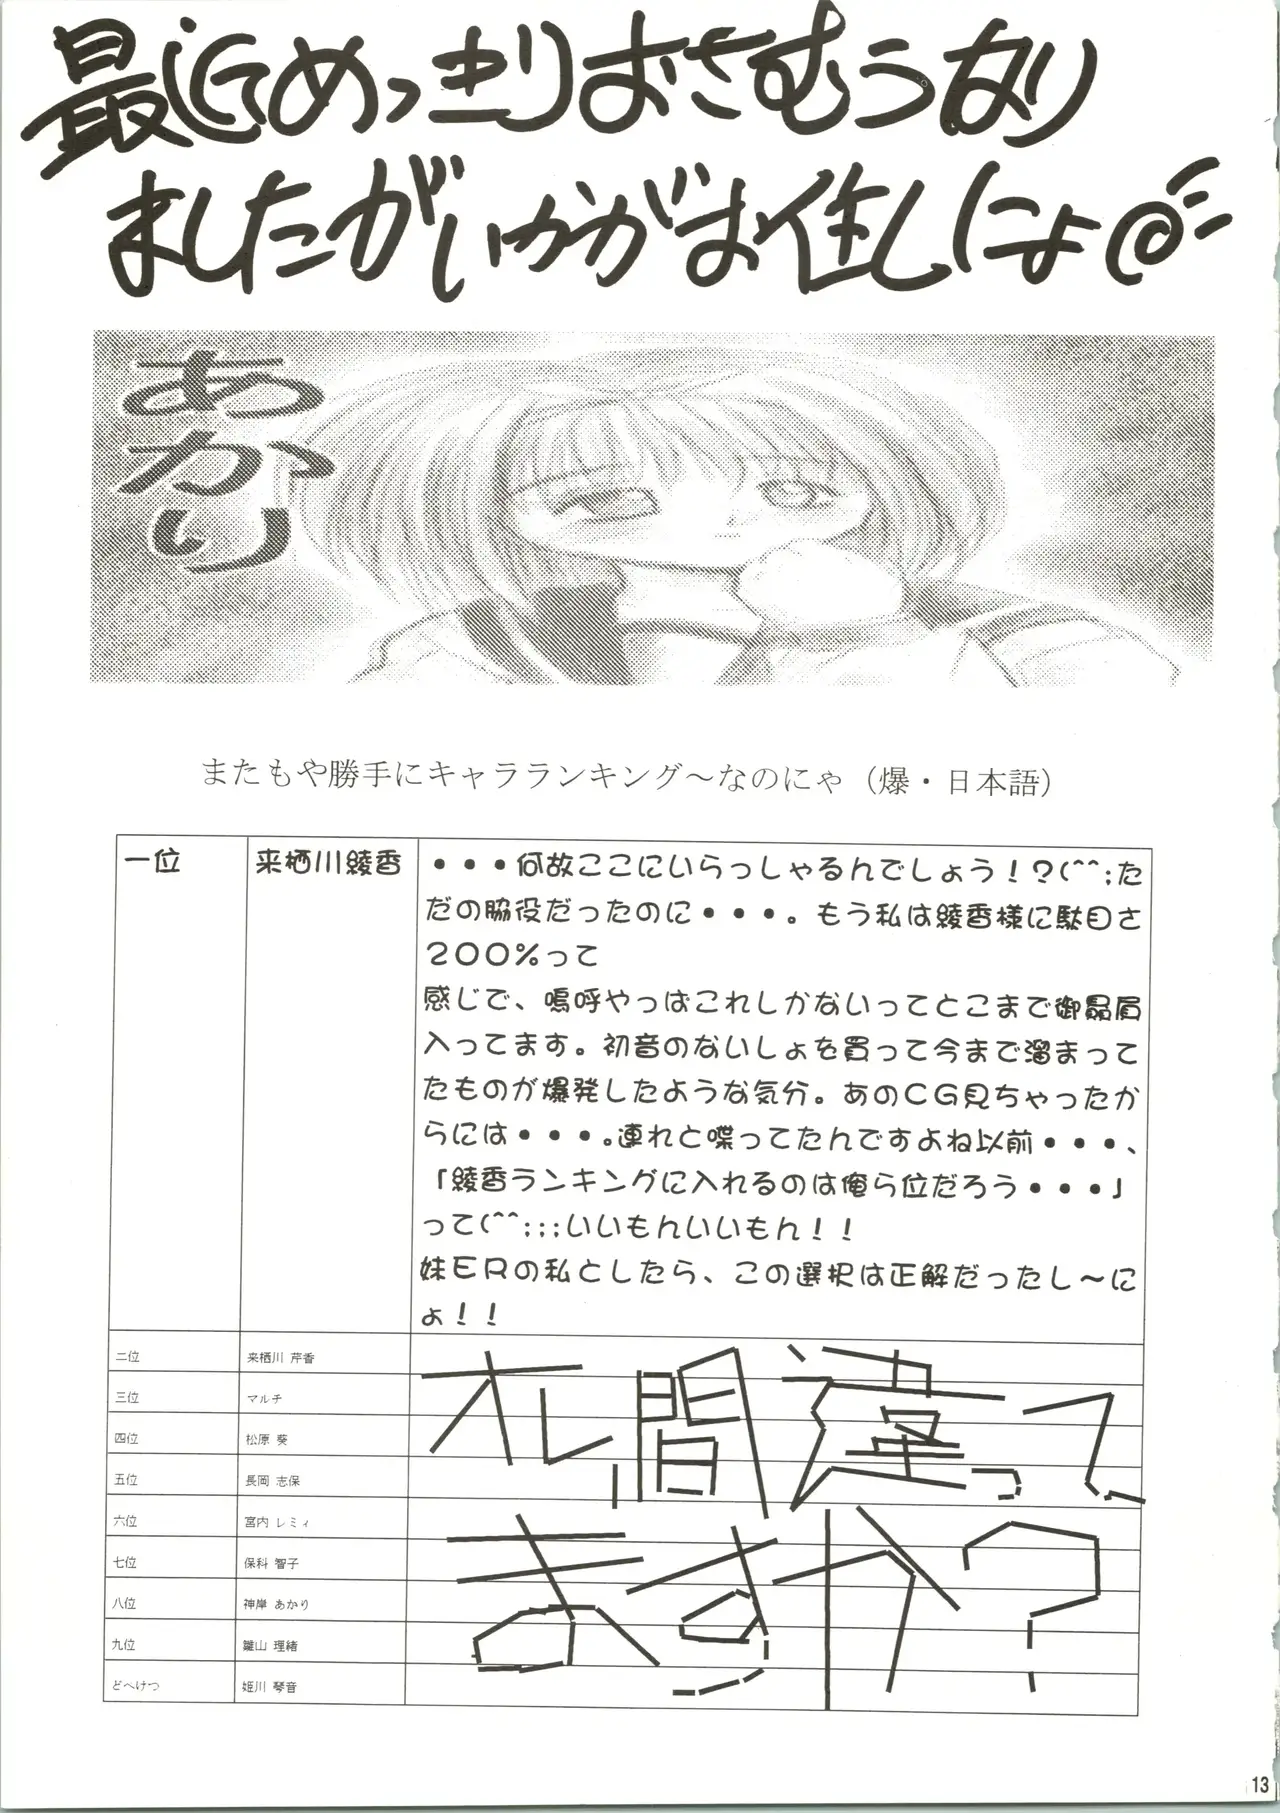 最近めっきりおさむうなり
ましたがいかがお住しにょ@
あかり
またもや勝手にキャラランキング～なのにゃ（爆・日本語）
一位 来栖川綾香 ・・・何故ここにいらっしゃるんでしょう！？(^^;た
だの脇役だったのに・・・。もう私は綾香様に駄目さ
２００％って
感じで、嗚呼やっはこれしかないってとこまで御贔屓
入ってます。初音のないしょを買って今まで溜まって
たものが爆発したような気分。あのＣＧ見ちゃったか
らには・・・。連れと喋ってたんですよね以前・・・、
「綾香ランキングに入れるのは俺ら位だろう・・・」
って(^^;;;いいもんいいもん！！
妹ＥＲの私としたら、この選択は正解だったし～に
ょ！！
二位 来栖川 芹香
三位 マルチ
四位 松原 葵
五位 長岡 志保
六位 宮内 レミィ
七位 保科 智子
八位 神岸 あかり
九位 雛山 理緒
どべけつ 姫川 琴音
13